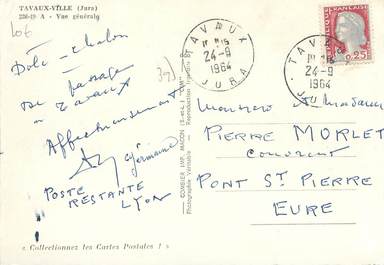 TAVAUX-VILLE (Jura)
226-19 A - Vue générale
106
Dole-Chalon
De passage
à Tavaux
Affectueusement
Germaine
POSTE
RESTANTE
LYON
« Collectionnez les Cartes Postales ! »
COMBIER IMP. MACON
Photographie Véritable - Reproduction
TAVAUX
24-9
1964
JURA
TAVAUX
24-9
1964
JURA
0,25
Monsieur Madame
PIERRE MORLET
PONT ST PIERRE
EURE